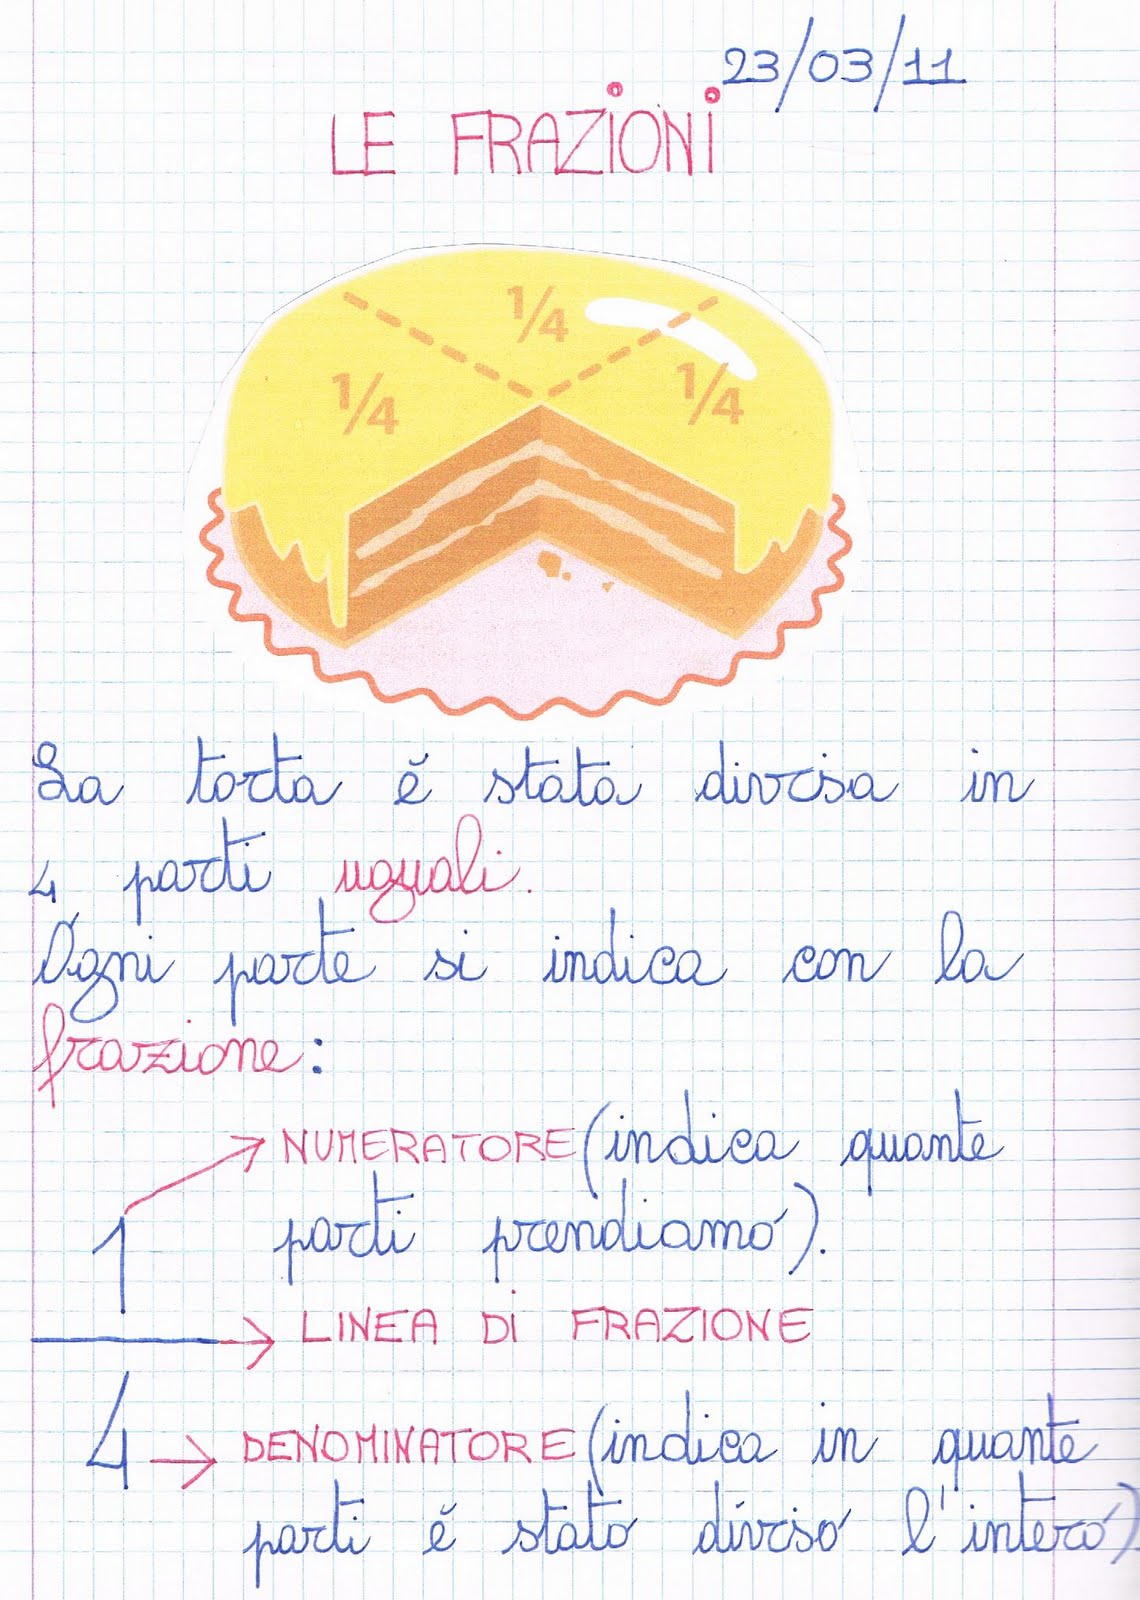 23/03/11
LE FRAZIONI
1/4
1/4
1/4
La torta è stata divisa in
4 parti uguali.
Ogni parte si indica con la
frazione:
NUMERATORE (indica quante
1
parti prendiamo).
LINEA DI FRAZIONE
4
DENOMINATORE (indica in quante
parti è stato diviso l'intero)